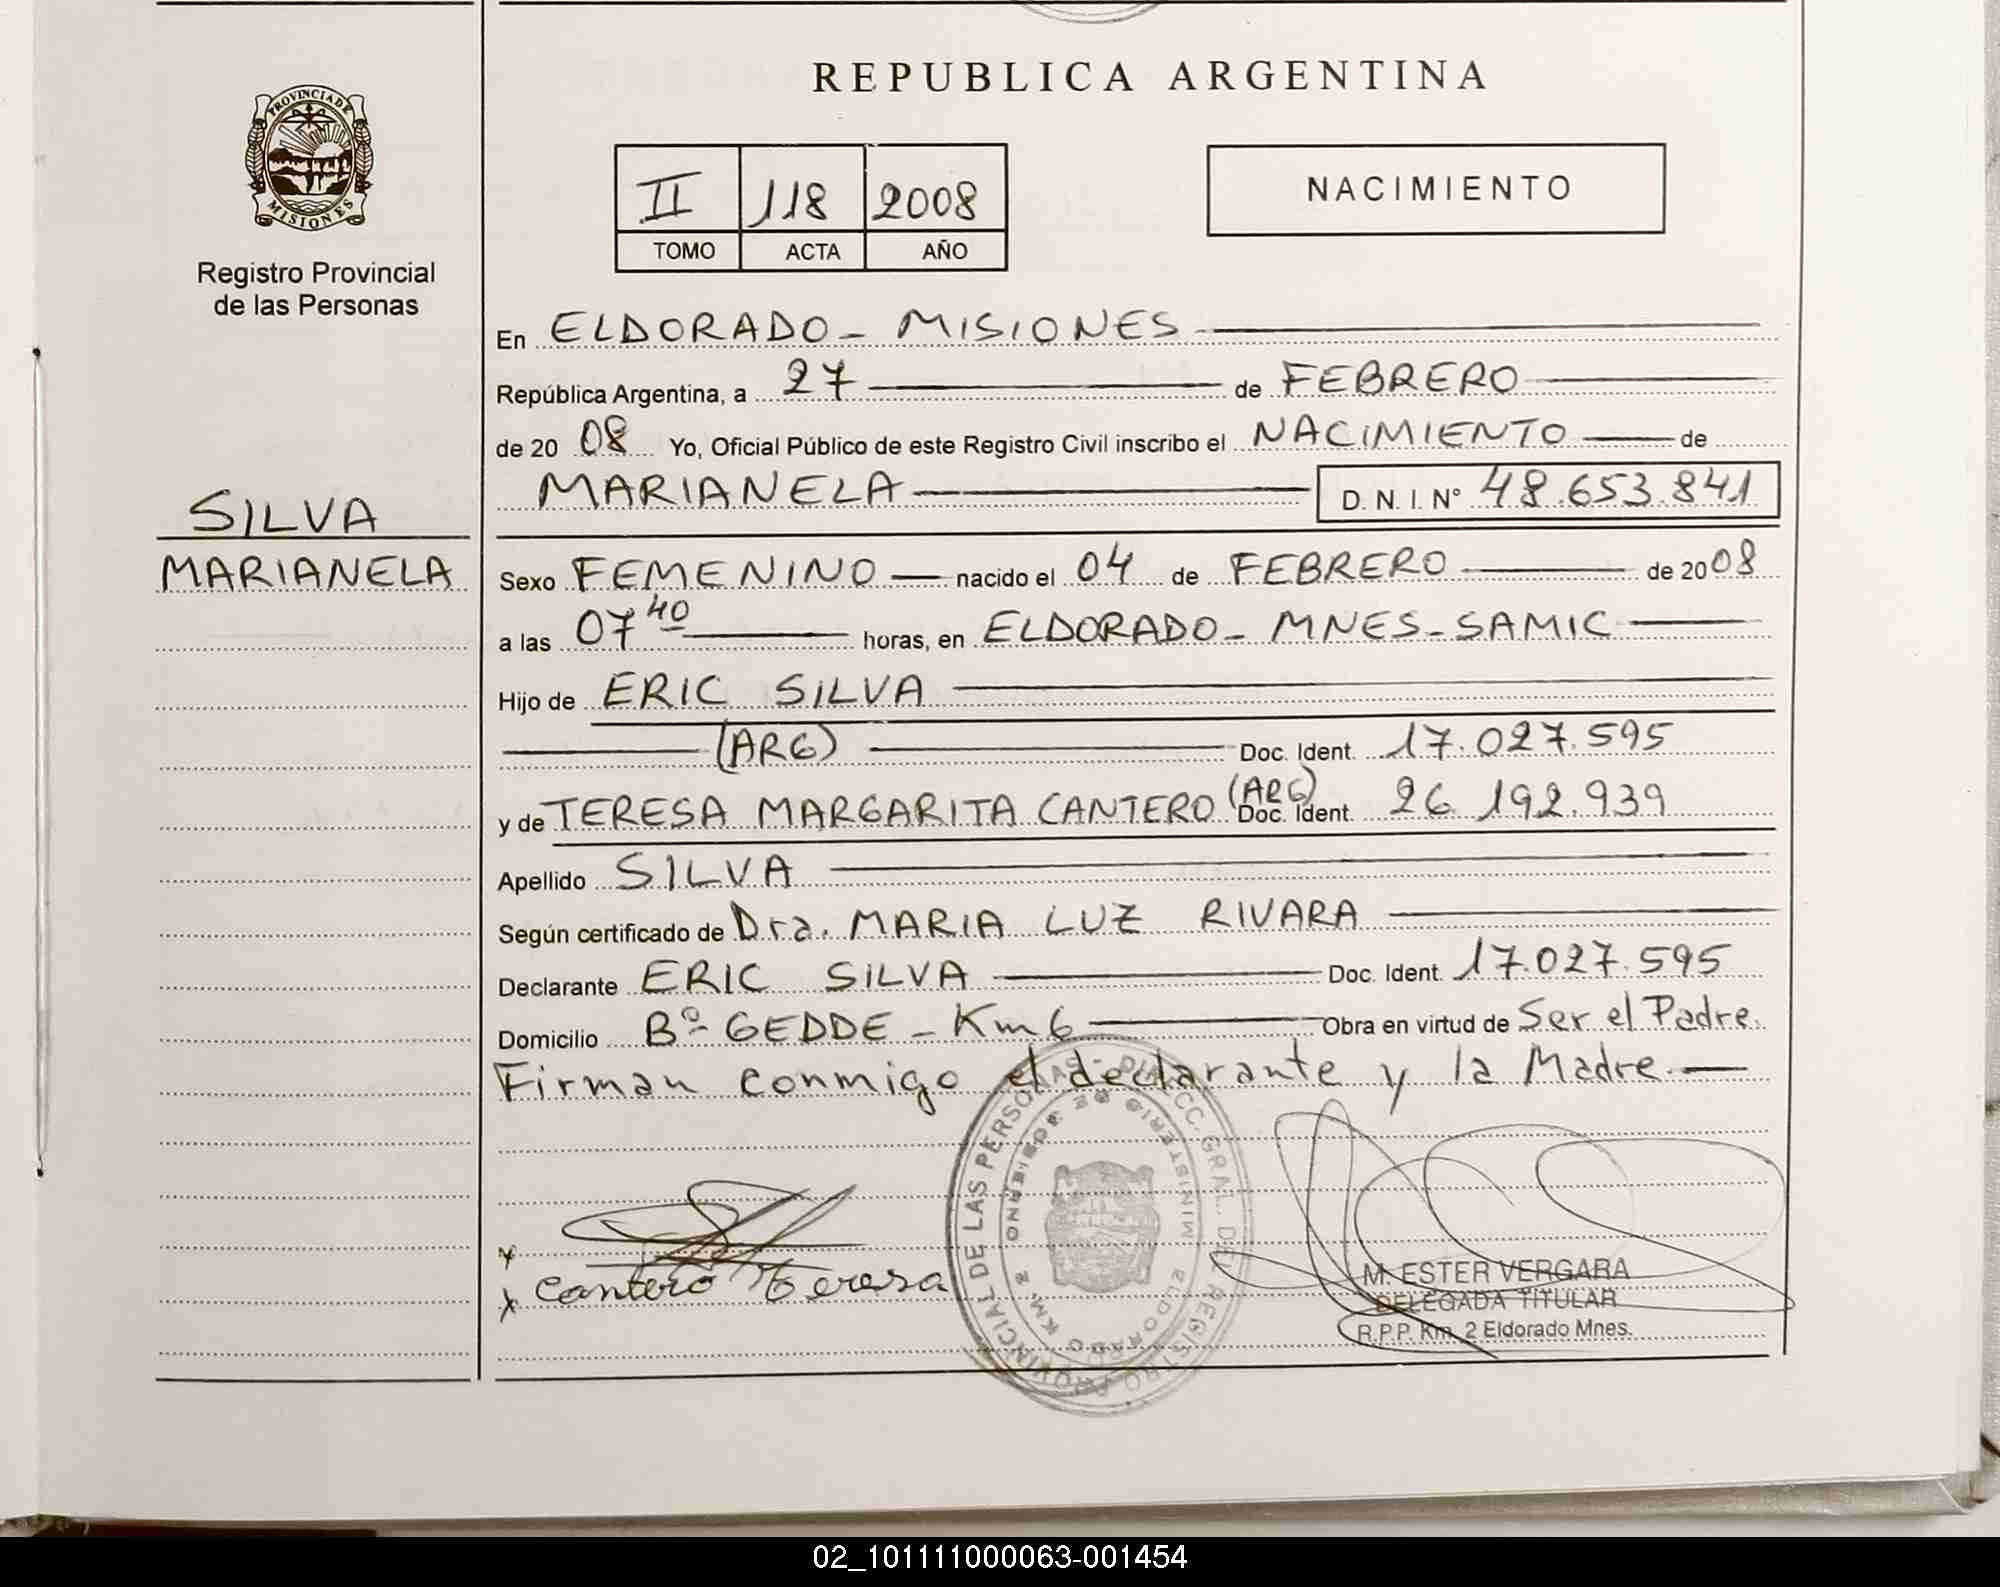 REPUBLICA ARGENTINA
PROVINCIA DE
MISIONES
Registro Provincial
de las Personas
II 118 2008
TOMO ACTA AÑO
NACIMIENTO
En ELDORADO - MISIONES
República Argentina, a 27 de FEBRERO
de 20 08 Yo, Oficial Público de este Registro Civil inscribo el NACIMIENTO de
MARIANELA D. N. I. N° 48.653.841
SILVA
MARIANELA
Sexo FEMENINO nacido el 04 de FEBRERO de 2008
a las 07 40 horas, en ELDORADO - MNES - SAMIC
Hijo de ERIC SILVA
(ARG) Doc. Ident. 17.027.595
y de TERESA MARGARITA CANTERO (ARG) Doc. Ident. 26.192.939
Apellido SILVA
Según certificado de Dra. MARIA LUZ RIVARA
Declarante ERIC SILVA Doc. Ident. 17.027.595
Domicilio Bº GEDDE - Km 6 Obra en virtud de Ser el Padre.
Firman conmigo el declarante y la Madre.
x
x Cantero Teresa
DIRECC. GRAL. DEL REGISTRO PROVINCIAL DE LAS PERSONAS
MINISTERIO DE GOBIERNO
ELDORADO KM. 2
M. ESTER VERGARA
DELEGADA TITULAR
R.P.P. Km. 2 Eldorado Mnes.
02_101111000063-001454